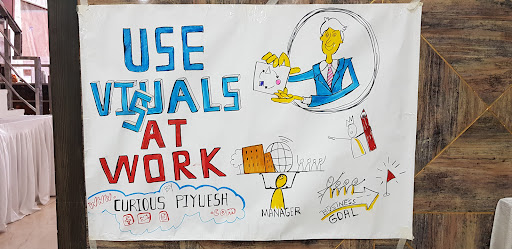 USE
VISUALS
AT
WORK
BY
www.
CURIOUS PIYUESH
.com
MANAGER
BUSINESS
GOAL